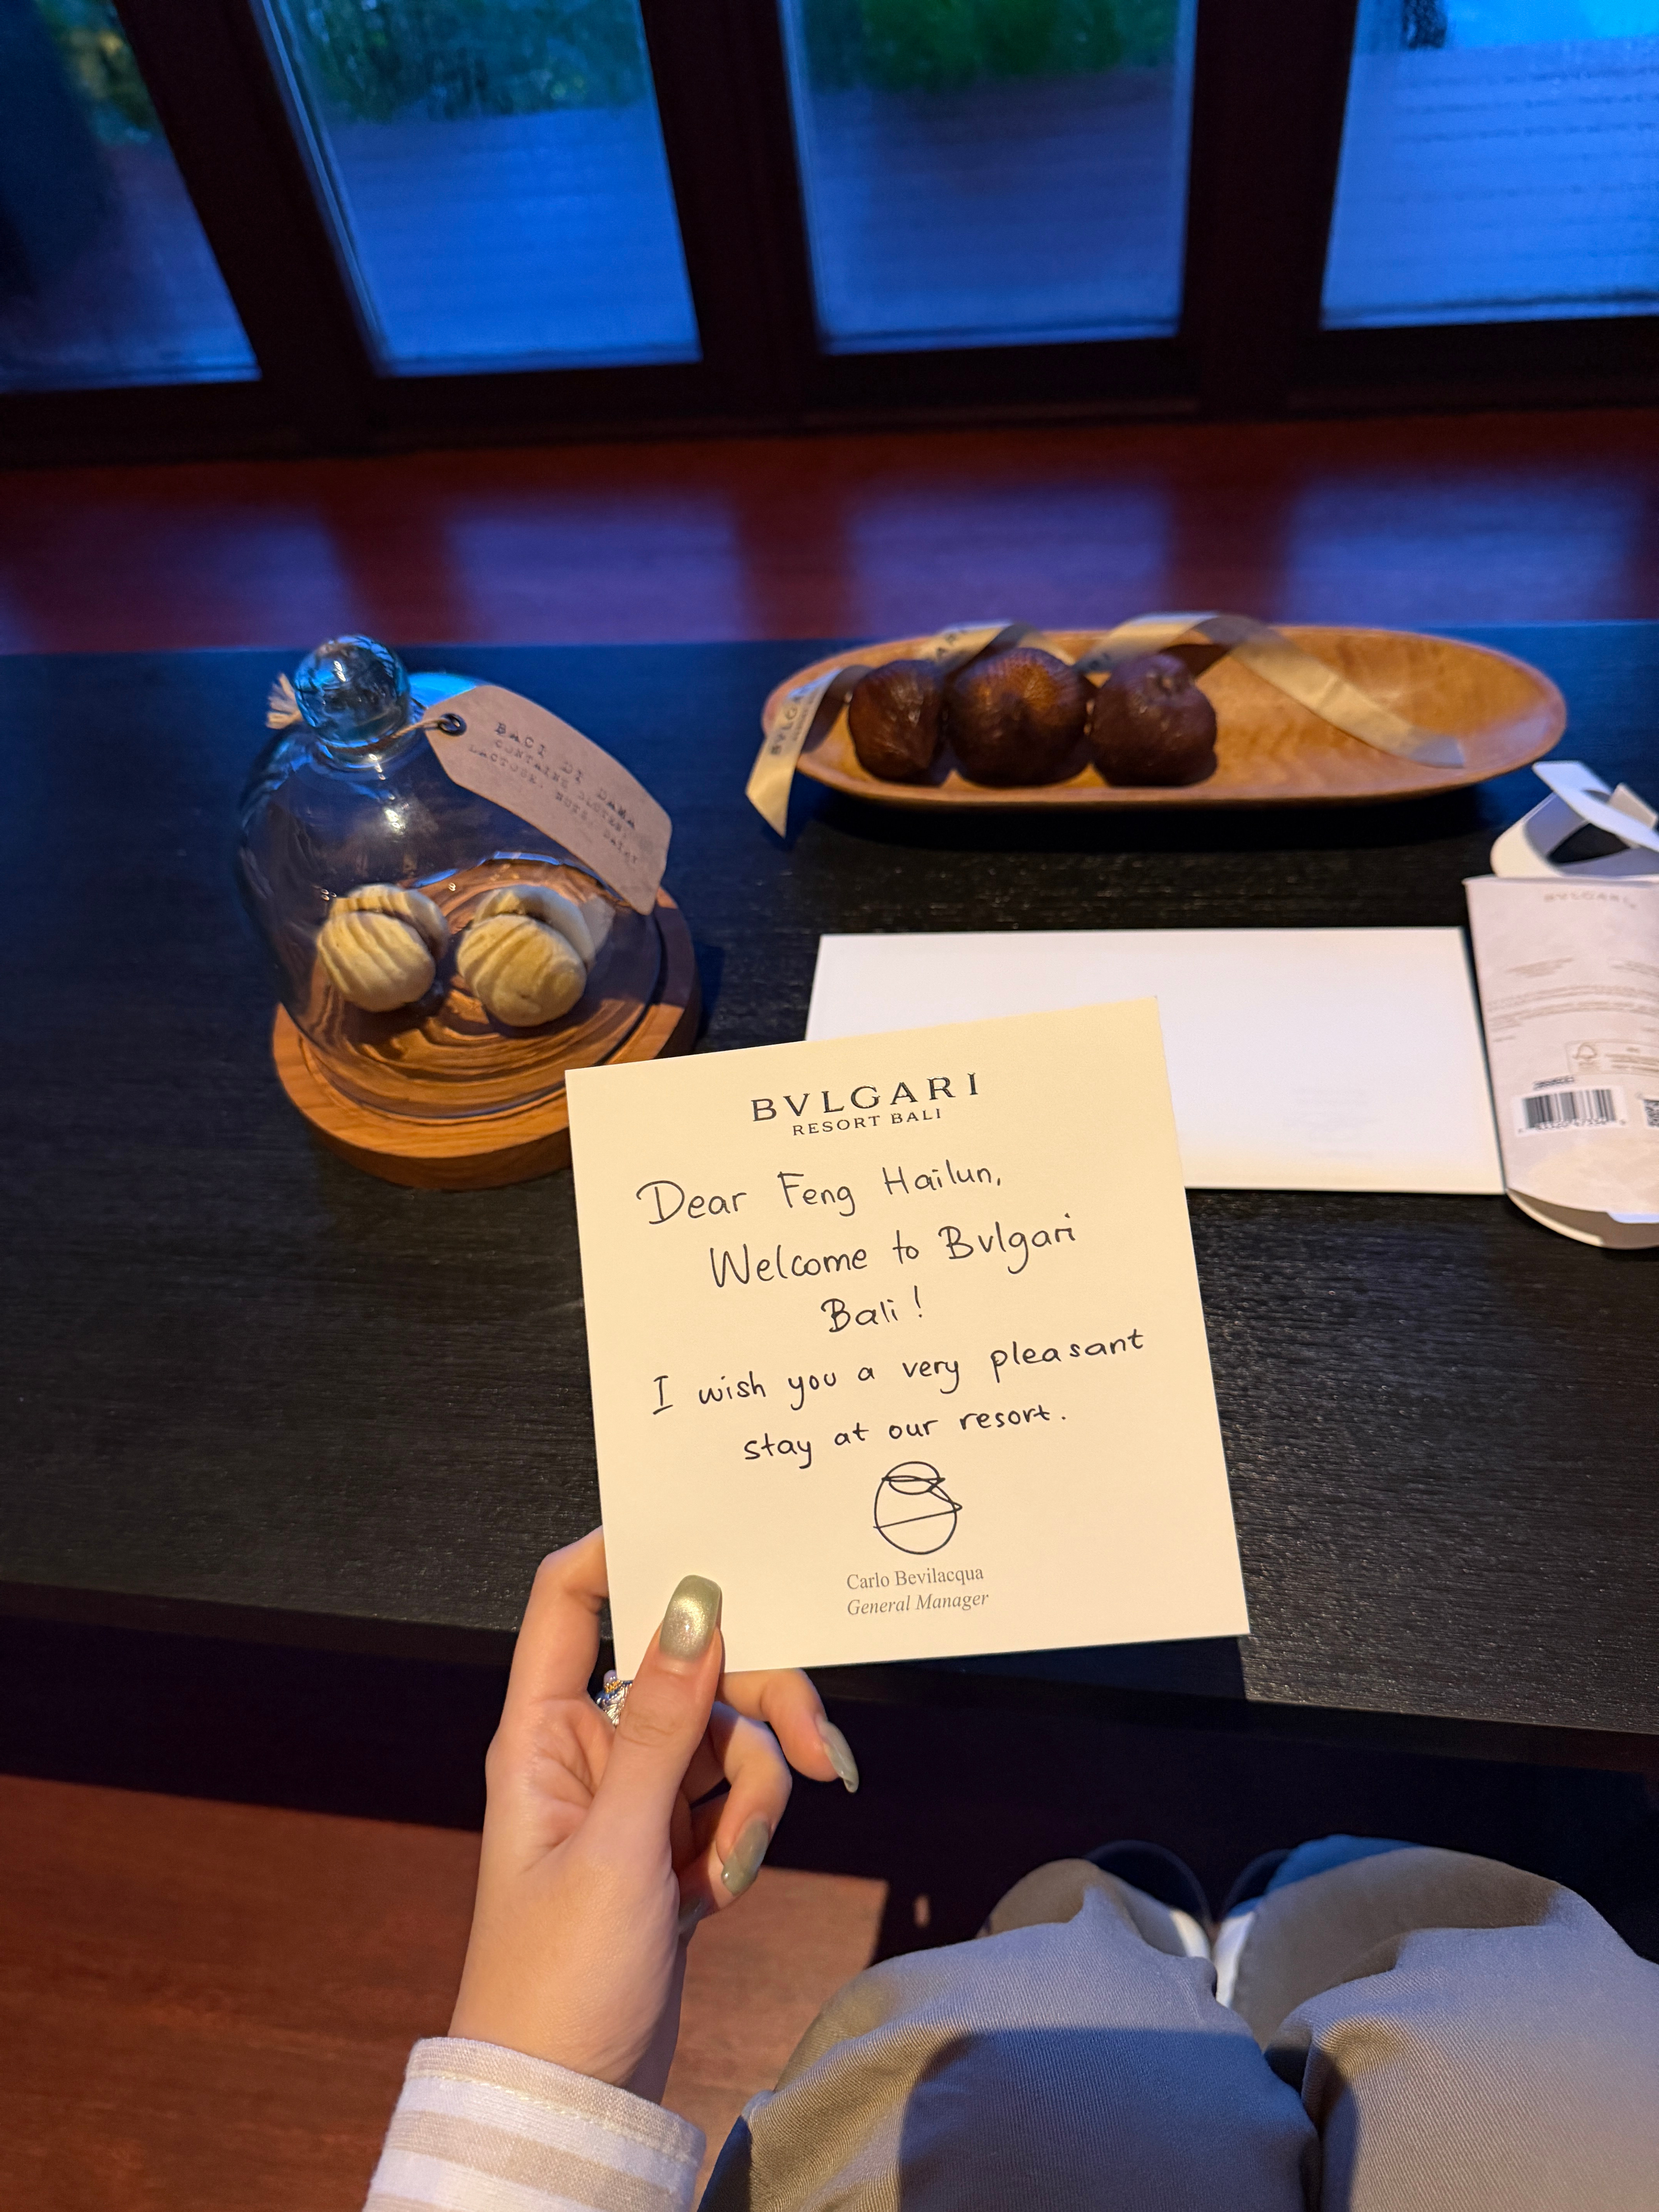 BACI DI DAMA
CONTAINS GLUTEN,
LACTOSE, NUTS, DAIRY
BVLGARI
BVLGARI
BVLGARI
RESORT BALI
Dear Feng Hailun,
Welcome to Bvlgari
Bali!
I wish you a very pleasant
stay at our resort.
Carlo Bevilacqua
General Manager